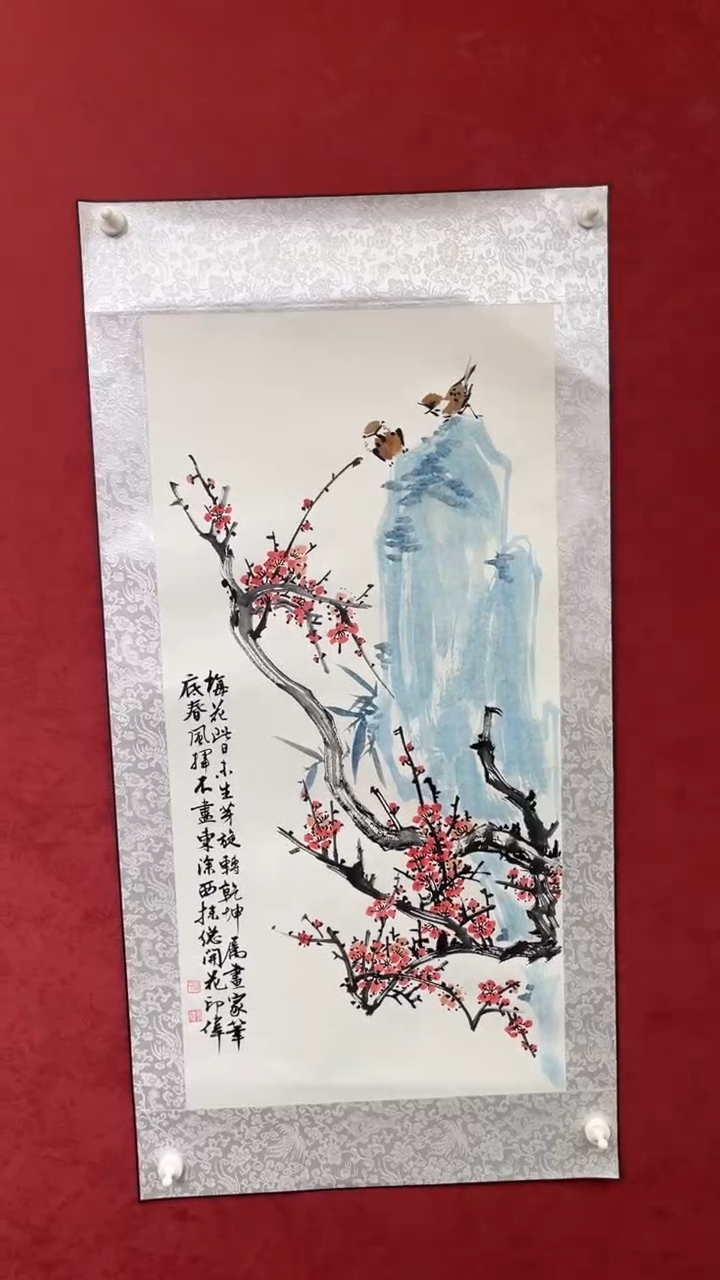 梅花此日未生芽旋轉乾坤属畫家筆
底春風揮不盡東涂西抹總開花印偉